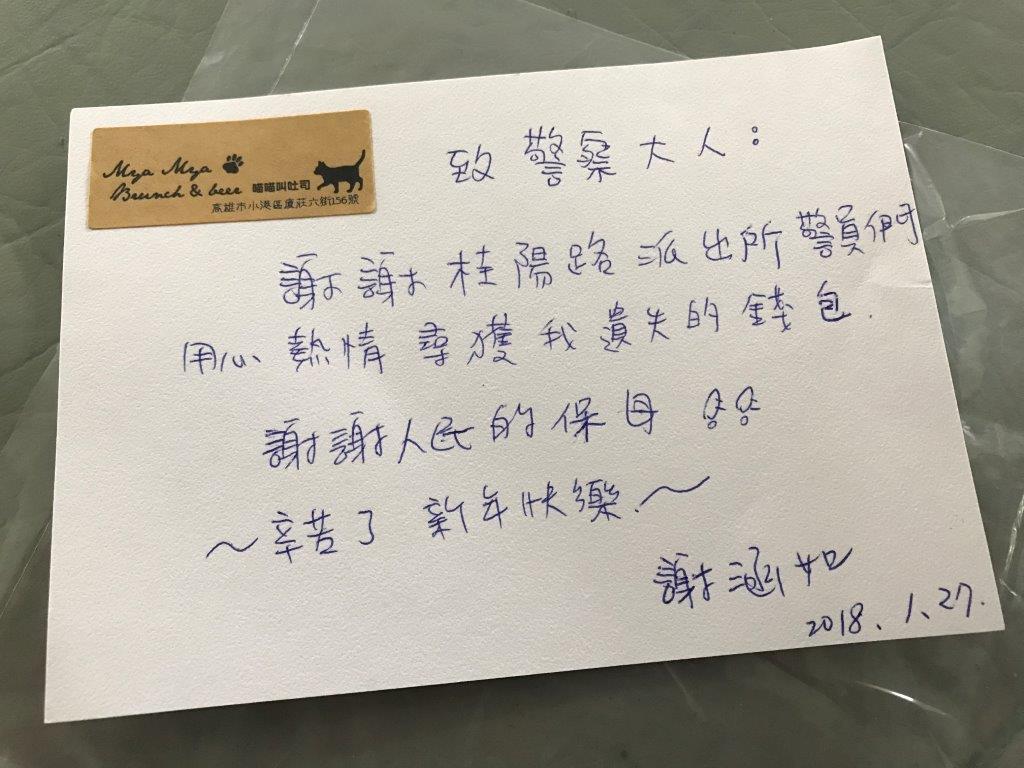 Mya Mya
Brunch & beer 喵喵叫吐司
高雄市小港區廈莊六街156號
致 警察大人：
謝謝桂陽路派出所警員們
用心熱情尋獲我遺失的錢包.
謝謝人民的保母 !!
～辛苦了 新年快樂.～
謝涵如
2018、1、27.